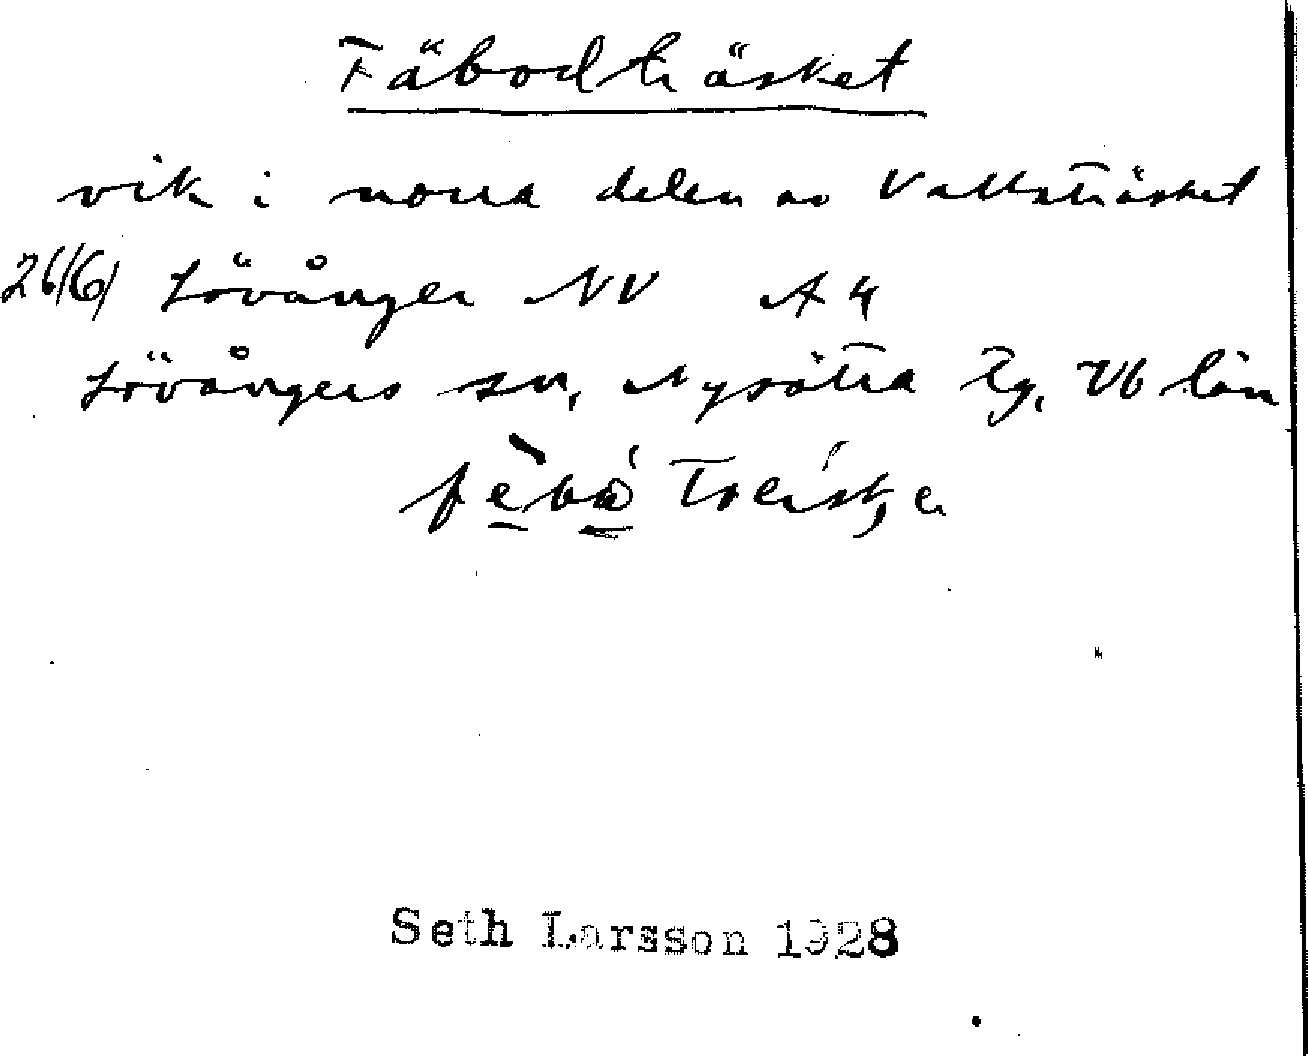 Fäbodträsket
vik i norra delen av Vallsträsket
26/6/ Lövånger NV A 4
Lövångers sn, Nysätra tg, Vb län
Seth Larsson 1928